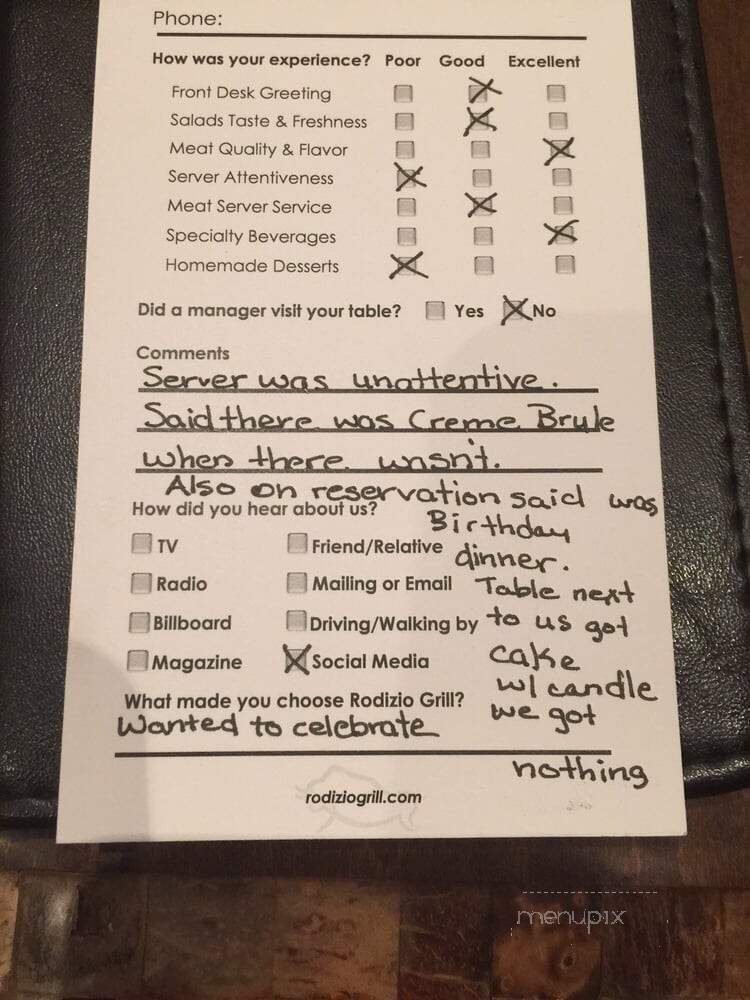 Phone:
How was your experience? Poor Good Excellent
Front Desk Greeting
Salads Taste & Freshness
Meat Quality & Flavor
Server Attentiveness
Meat Server Service
Specialty Beverages
Homemade Desserts
Did a manager visit your table? Yes No
Comments
Server was unattentive.
Said there was Creme Brule
when there wasn't.
Also on reservation said was
Birthday
dinner.
Table next
to us got
cake
w/ candle
we got
nothing
How did you hear about us?
TV Friend/Relative
Radio Mailing or Email
Billboard Driving/Walking by
Magazine Social Media
What made you choose Rodizio Grill?
Wanted to celebrate
rodiziogrill.com
menupix